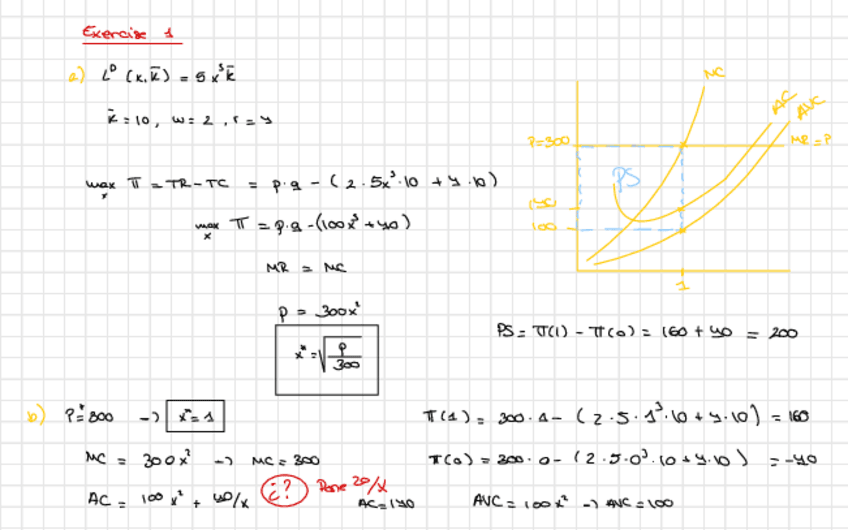 Exercise 1
a) L^D (x, k̄) = 5x³k̄
k̄ = 10, w = 2, r = 4
max_x π = TR - TC = p·q - (2·5x³·10 + 4·10)
max_x π = p·q - (100x³ + 40)
MR = MC
p = 300x²
x* = √(p/300)
MC
AC
AVC
P=300
MR = P
PS
140
100
1
PS = π(1) - π(0) = 160 + 40 = 200
b) P* = 300 → x* = 1
MC = 300x² → MC = 300
AC = 100x² + 40/x ¿? Pone 20/x AC = 140
π(1) = 300·1 - (2·5·1³·10 + 4·10) = 160
π(0) = 300·0 - (2·5·0³·10 + 4·10) = -40
AVC = 100x² → AVC = 100